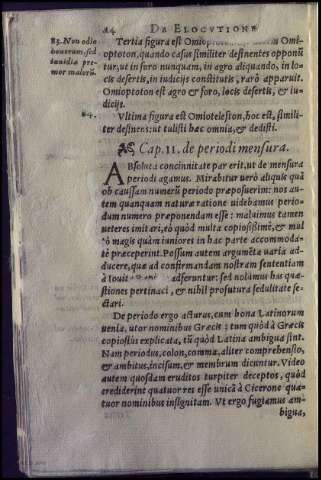 24 DE ELOCUTIONE
83. Non odio
bonorum, sed
inuidia pre-
mor malorũ.
Tertia figura est Omioptoton Omi-
optoton, quando casus similiter desinentes opponũ
tur, ut in foro nunquam, in agro aliquando, in lo-
cis desertis, in indicijs constitutis, rarò apparuit.
Omioptoton est agro & foro, locis desertis, & iu-
dicijs.
84.
Vltima figura est Omioteleston, hoc est, simili-
ter desinens: ut tulisti hæc omnia, & dedisti.
Cap. 11. de periodi mensura.
ABsoluta concinnitate par erit, ut de mensura
periodi agamus. Mirabitur uerò aliquis quã
ob caussam numerũ periodo præposuerim: nos au-
tem quanquam natura ratione uidebamus perio-
dum numero præponendam esse: maluimus tamen
ueteres imitari, eò quòd multa copiosissimè, & mul
tò magis quàm iuniores in hac parte accommoda-
tè præceperint. Possum autem argumẽta uaria ad-
ducere, quæ ad confirmandam nostram sententiam
à adferuntur: sed nolumus has quæ-
stiones pertinaci, & nihil profutura sedulitate se-
ctari.
De periodo ergo acturus, cum bona Latinorum
uenia, utar nominibus Græcis: tum quòd à Græcis
copiosius explicata, tũ quòd Latina ambigua sint.
Nam periodus, colon, comma, aliter comprehensio,
& ambitus, incisum, & membrum dicuntur. Video
autem quosdam eruditos turpiter deceptos, quòd
crediderint quatuor res esse unicã à Cicerone qua-
tuor nominibus insignitam. Vt ergo fugiamus am-
bigua,